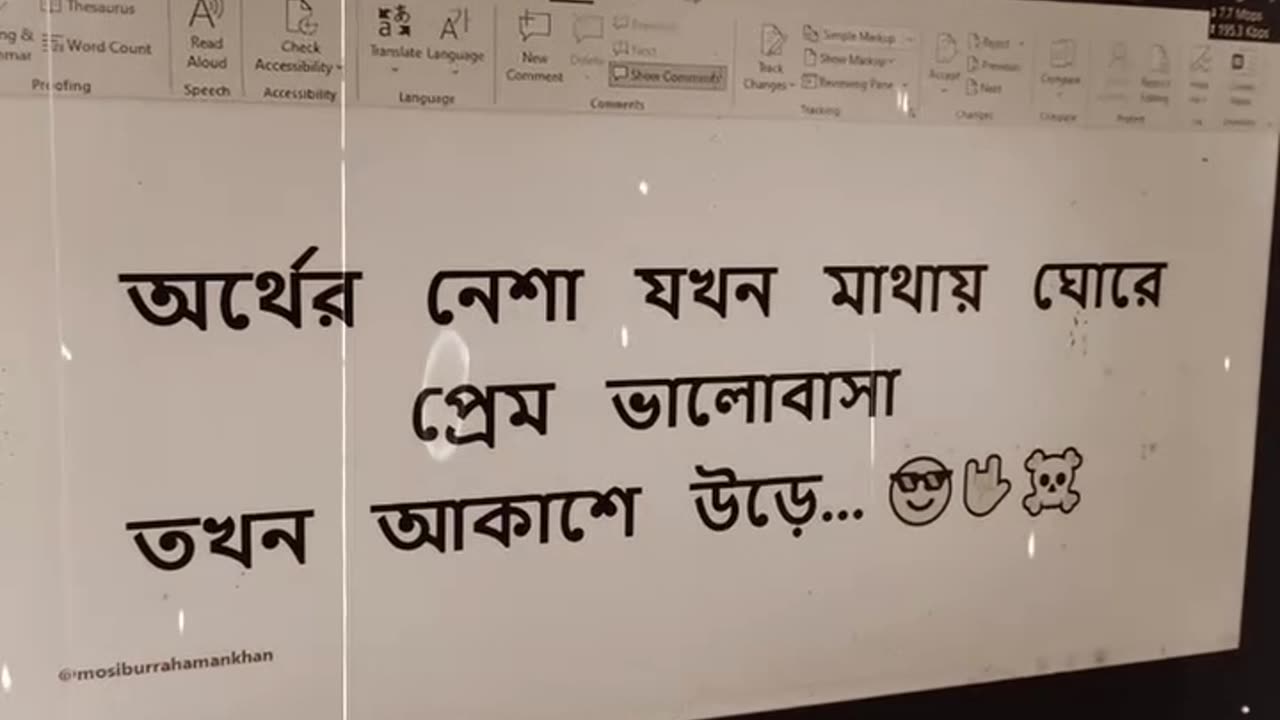 Thesaurus
Word Count
Proofing
Read Aloud
Speech
Check Accessibility
Accessibility
Translate Language
Language
New Comment
Delete
Previous
Next
Show Comments
Comments
Track Changes
Simple Markup
Show Markup
Reviewing Pane
Tracking
Accept
Reject
Previous
Next
Changes
Compare
Compare
Protect
7.7 Mbps
195.3 Kbps
অর্থের নেশা যখন মাথায় ঘোরে
প্রেম ভালোবাসা
তখন আকাশে উড়ে... 😎🤘☠
@mosiburrahamankhan